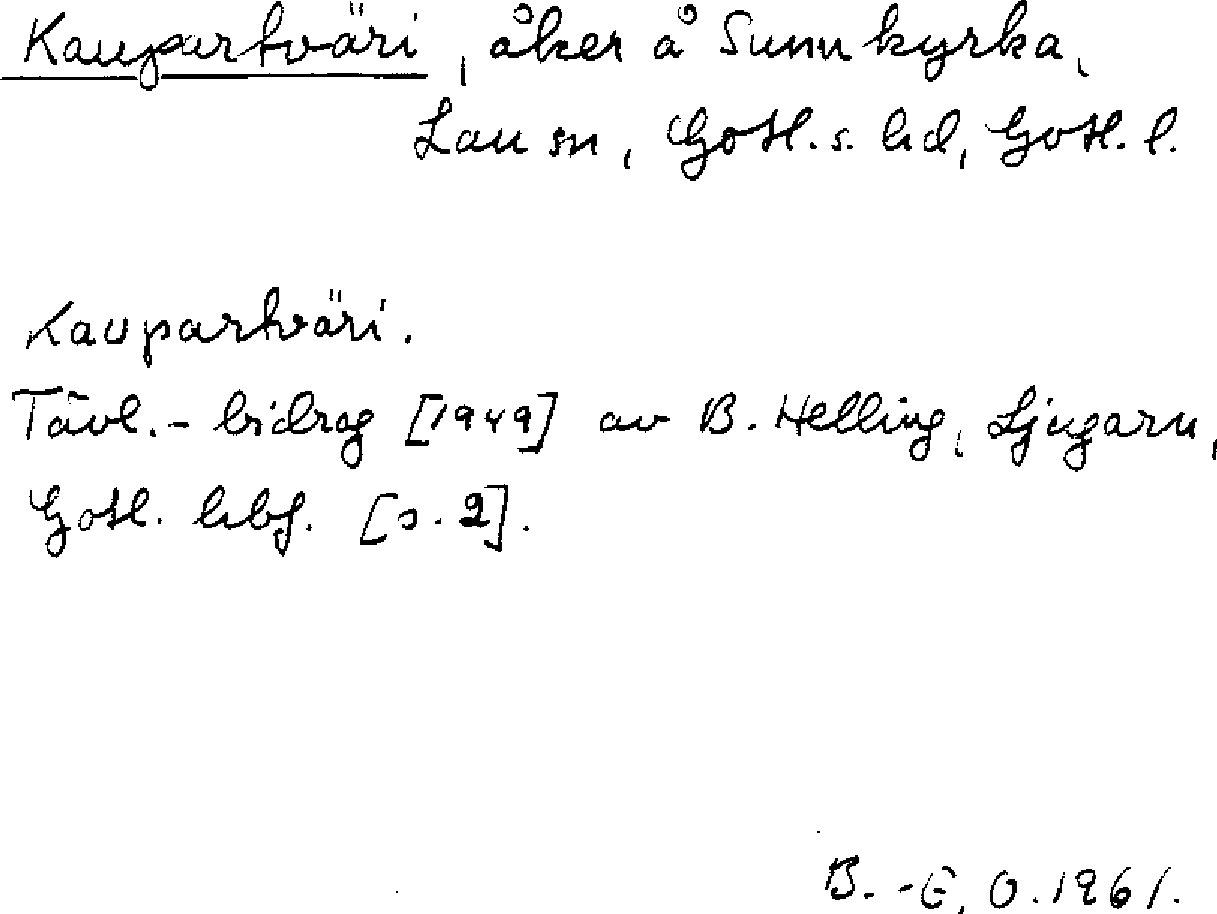 Kaupartväri, åker å Sunnkyrka,
Lau sn, Gotl. s. hd, Gotl. l.
Kaupartväri.
Tävl.-bidrag [1949] av B. Helling, Ljugarn,
Gotl. hbf. [s. 2].
B.-E. O. 1961.